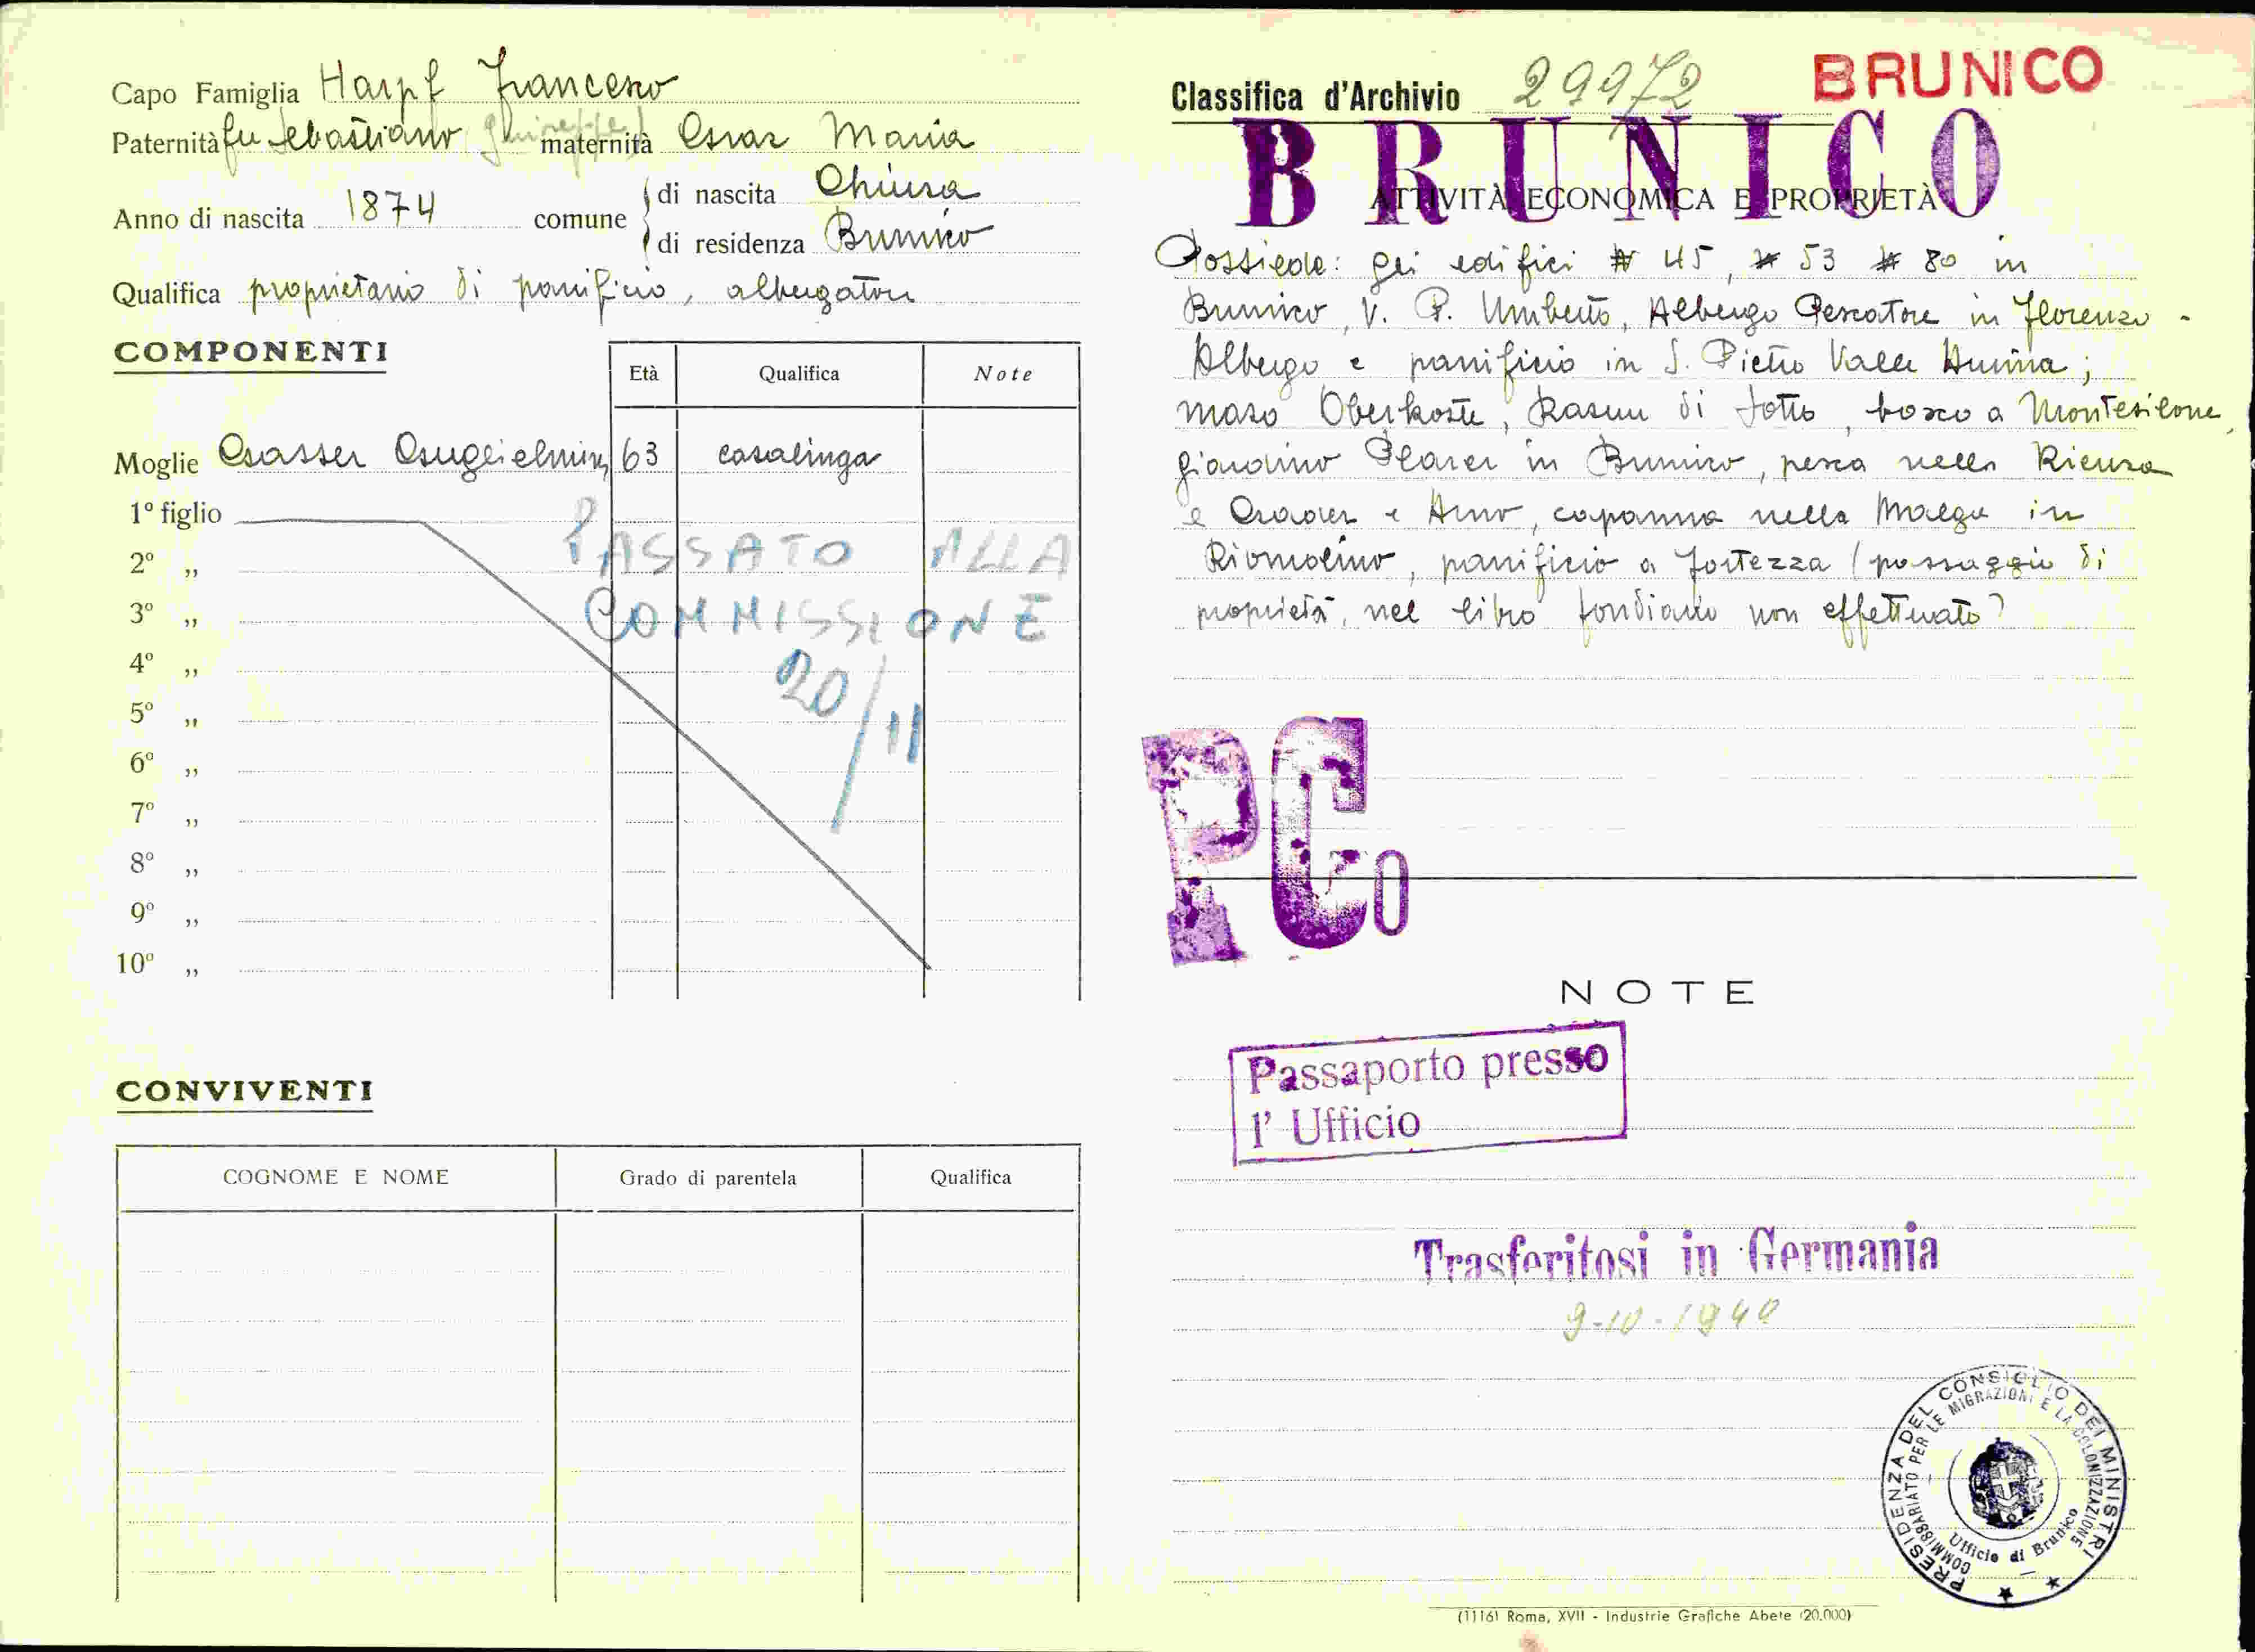 Capo Famiglia Harpf Francesco
Paternità fu Sebastiano (Giuseppe) maternità Maria
Anno di nascita 1874 comune
di nascita Chiusa
di residenza Brunico
Qualifica proprietario di panificio, albergatore
COMPONENTI
Età Qualifica Note
Moglie 63 casalinga
1º figlio
2º „
3º „
4º „
5º „
6º „
7º „
8º „
9º „
10º „
PASSATO ALLA
COMMISSIONE
20/11
CONVIVENTI
COGNOME E NOME Grado di parentela Qualifica
Classifica d'Archivio 29972
BRUNICO
BRUNICO
ATTIVITÀ ECONOMICA E PROPRIETÀ
Possiede: gli edifici # 45, # 53 # 80 in
Brunico, V. P. Umberto, Albergo Pescatore in
Albergo e panificio in S. Pietro Valle Aurina;
maso Rasun di sotto, bosco a Montesilone,
giardino in Brunico, pesca nella Rienza
e e Arno, capanna nella Malga in
Riomolino, panificio a Fortezza (passaggio di
proprietà, nel libro fondiario non effettuato?
PCo
NOTE
Passaporto presso
l' Ufficio
Trasferitosi in Germania
9-10-1940
PRESIDENZA DEL CONSIGLIO DEI MINISTRI
COMMISSARIATO PER LE MIGRAZIONI E LA COLONIZZAZIONE
Ufficio di Brunico
(1116) Roma, XVII - Industrie Grafiche Abete (20.000)